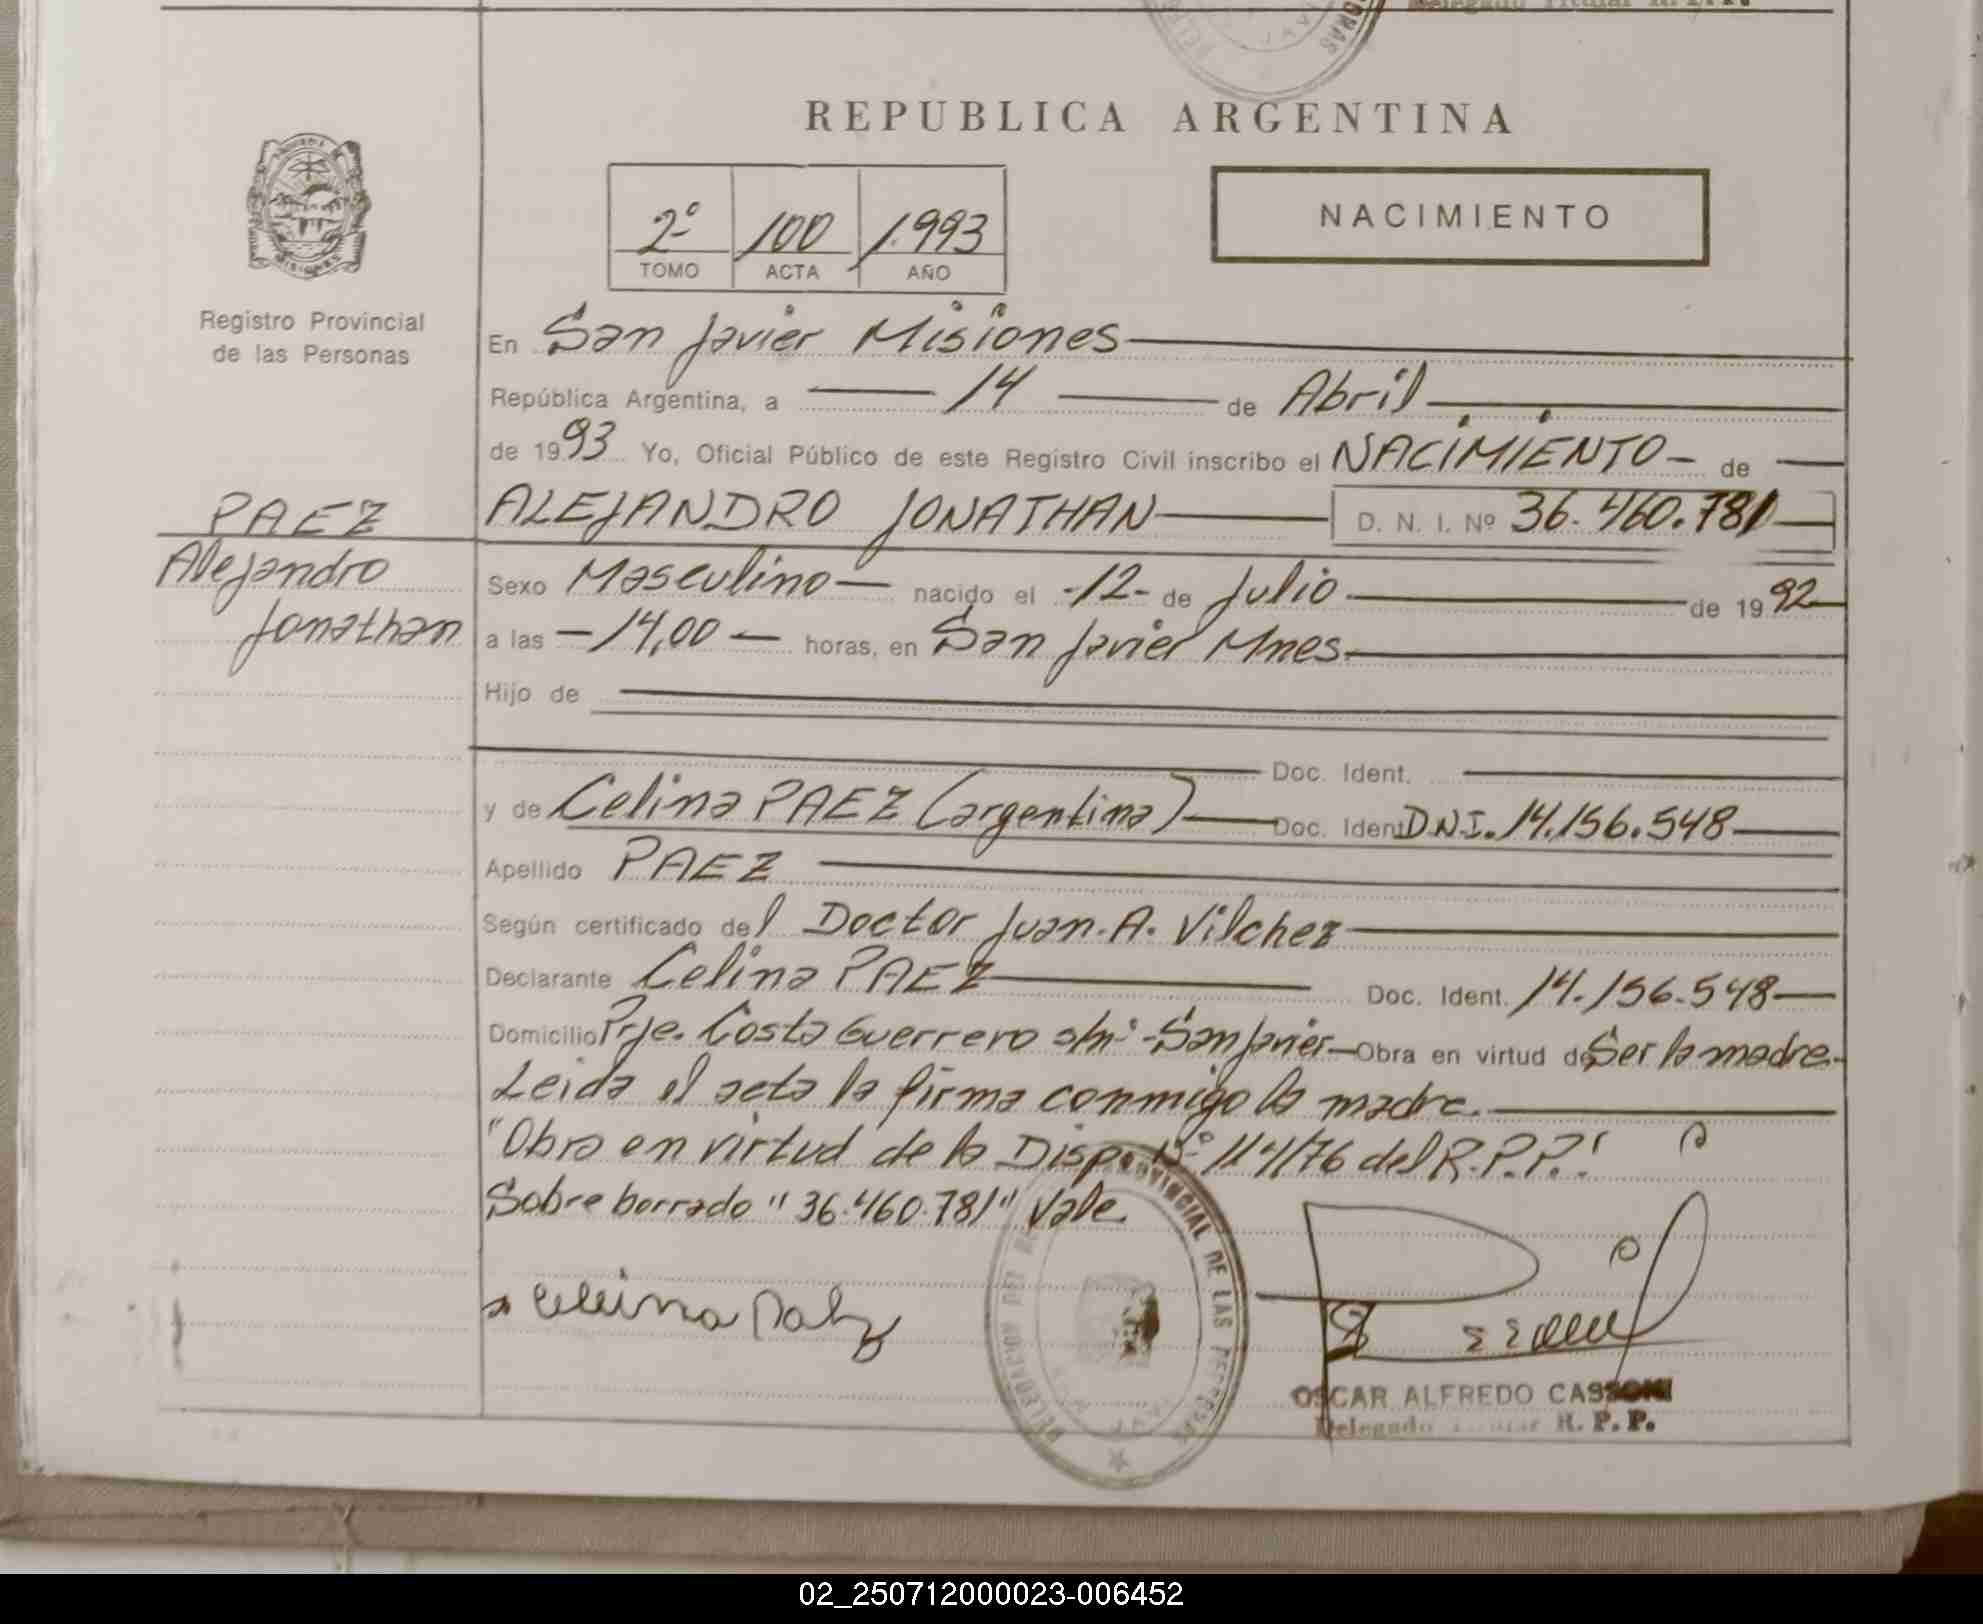 REPUBLICA ARGENTINA
2º 100 1.993
TOMO ACTA AÑO
NACIMIENTO
MISIONES
Registro Provincial
de las Personas
PAEZ
Alejandro
Jonathan
En San Javier Misiones
República Argentina, a 14 de Abril
de 1993 Yo, Oficial Público de este Registro Civil inscribo el NACIMIENTO - de
ALEJANDRO JONATHAN D. N. I. Nº 36.460.781
Sexo Masculino nacido el -12- de Julio de 1992
a las - 14,00 - horas, en San Javier Mnes.
Hijo de
Doc. Ident.
y de Celina PAEZ (argentina) Doc. Ident D.N.I. 14.156.548
Apellido PAEZ
Según certificado del Doctor Juan. A. Vilchez
Declarante Celina PAEZ Doc. Ident. 14.156.548
Domicilio Prje. Costa Guerrero s/nº - San Javier - Obra en virtud de Ser la madre.
Leida el acta la firma conmigo la madre.
"Obra en virtud de la Disp. Nº 114/76 del R.P.P."
Sobre borrado "36.460.781" Vale.
PROVINCIAL DE LAS PERSONAS
DELEGACION DEL
Celina Paez
OSCAR ALFREDO CASSONI
Delegado Titular R. P. P.
02_250712000023-006452